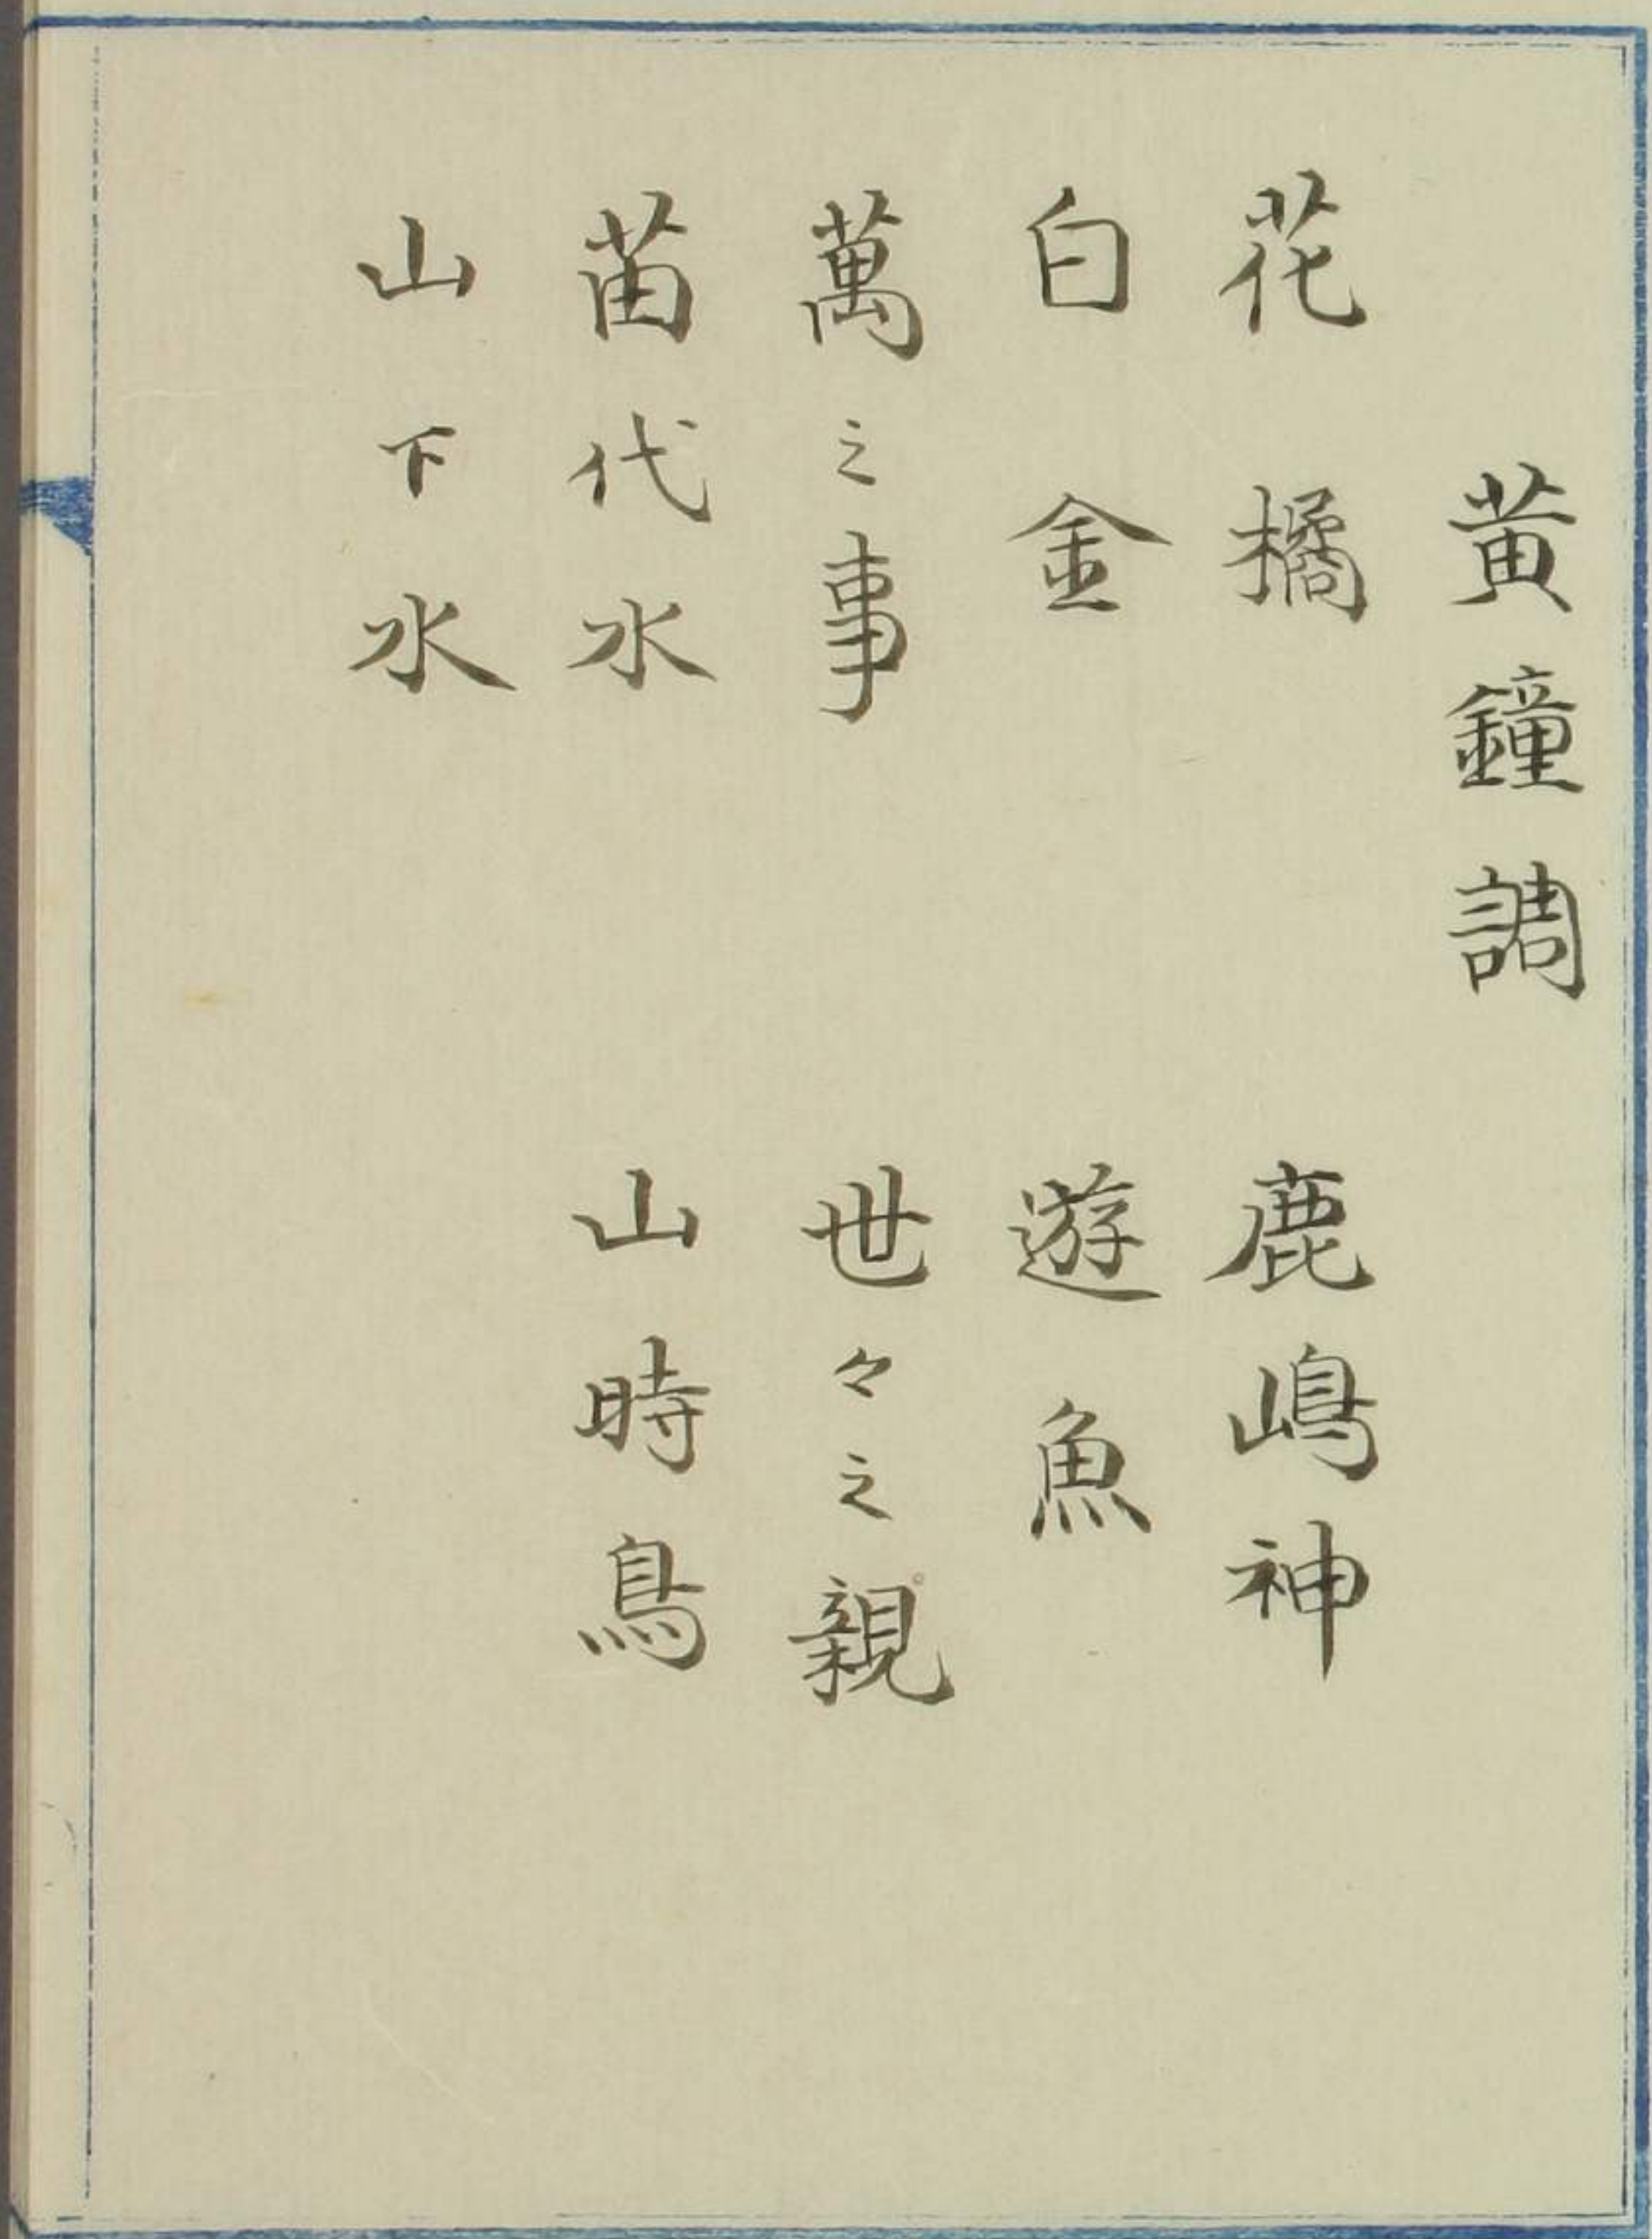 黄鐘調
花橘　鹿嶋神
白金　遊魚
萬之事　世々之親
苗代水　山時鳥
山下水